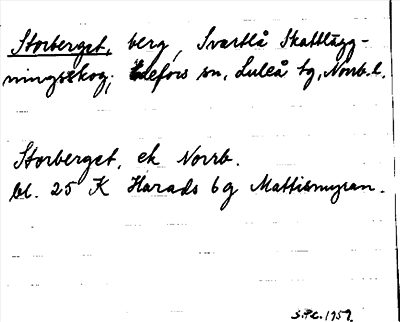 Storberget, berg, Svartlå Skattlägg-
ningsskog, Edefors sn, Luleå tg, Norrb.l.
Storberget, ek Norrb.
bl. 25 K Harads 6g Mattismyran.
S.P.C. 1959.